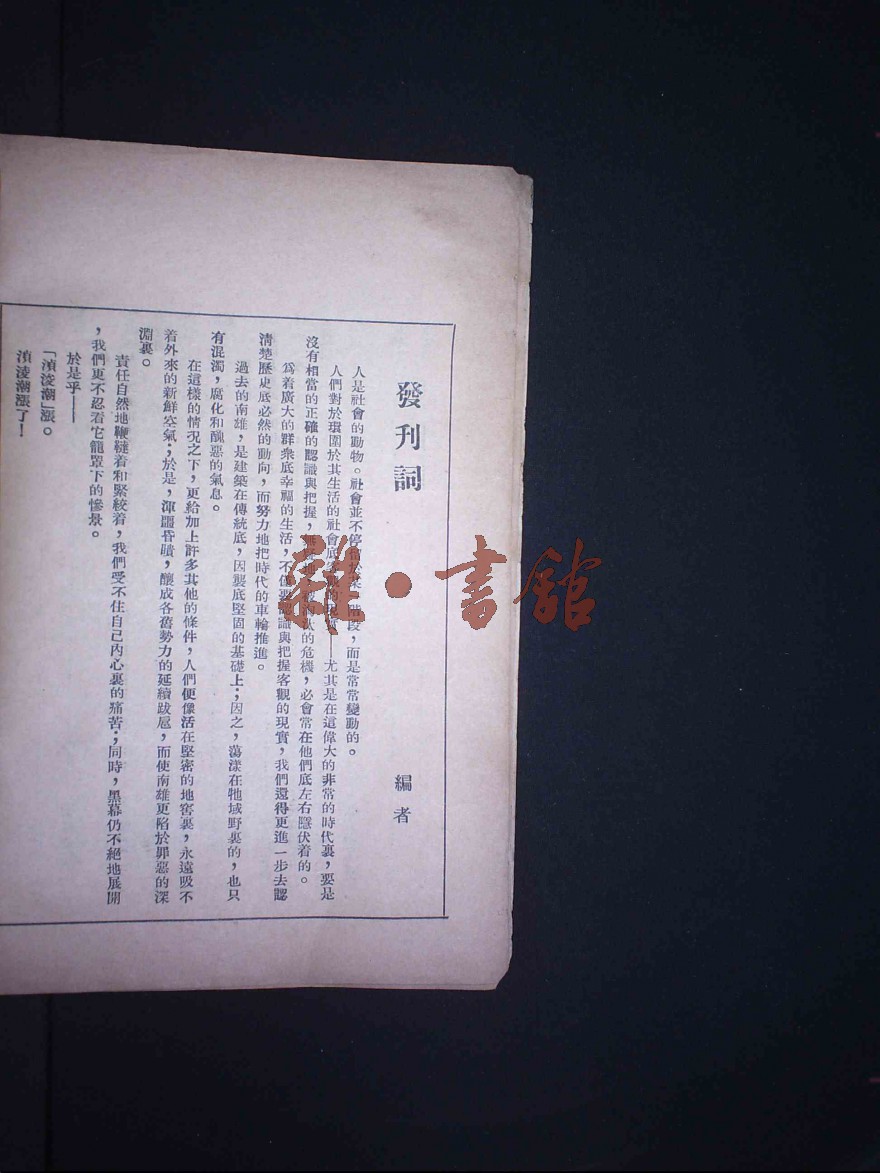 發刊詞
編者
人是社會的動物。社會並不停留於某一階段，而是常常變動的。
人們對於環圍於其生活的社會底客觀的現實——尤其是在這偉大的非常的時代裏，要是
沒有相當的正確的認識與把握，無疑地汰的危機，必會常在他們底左右隱伏着的。
爲着廣大的群衆底幸福的生活，不僅要認識與把握客觀的現實，我們還得更進一步去認
清楚歷史底必然的動向，而努力地把時代的車輪推進。
過去的南雄，是建築在傳統底，因襲底堅固的基礎上；因之，蕩漾在牠域野裏的，也只
有混濁，腐化和醜惡的氣息。
在這樣的情況之下，更給加上許多其他的條件，人們便像活在堅密的地窖裏，永遠吸不
着外來的新鮮空氣；於是，渾噩昏聵，釀成各舊勢力的延續跋扈，而使南雄更陷於罪惡的深
淵裏。
責任自然地鞭韃着和緊絞着，我們受不住自己內心裏的痛苦；同時，黑幕仍不絕地展開
，我們更不忍看它籠罩下的慘景。
於是乎——
「湞淩潮」漲。
湞淩潮漲了！
雜·書館